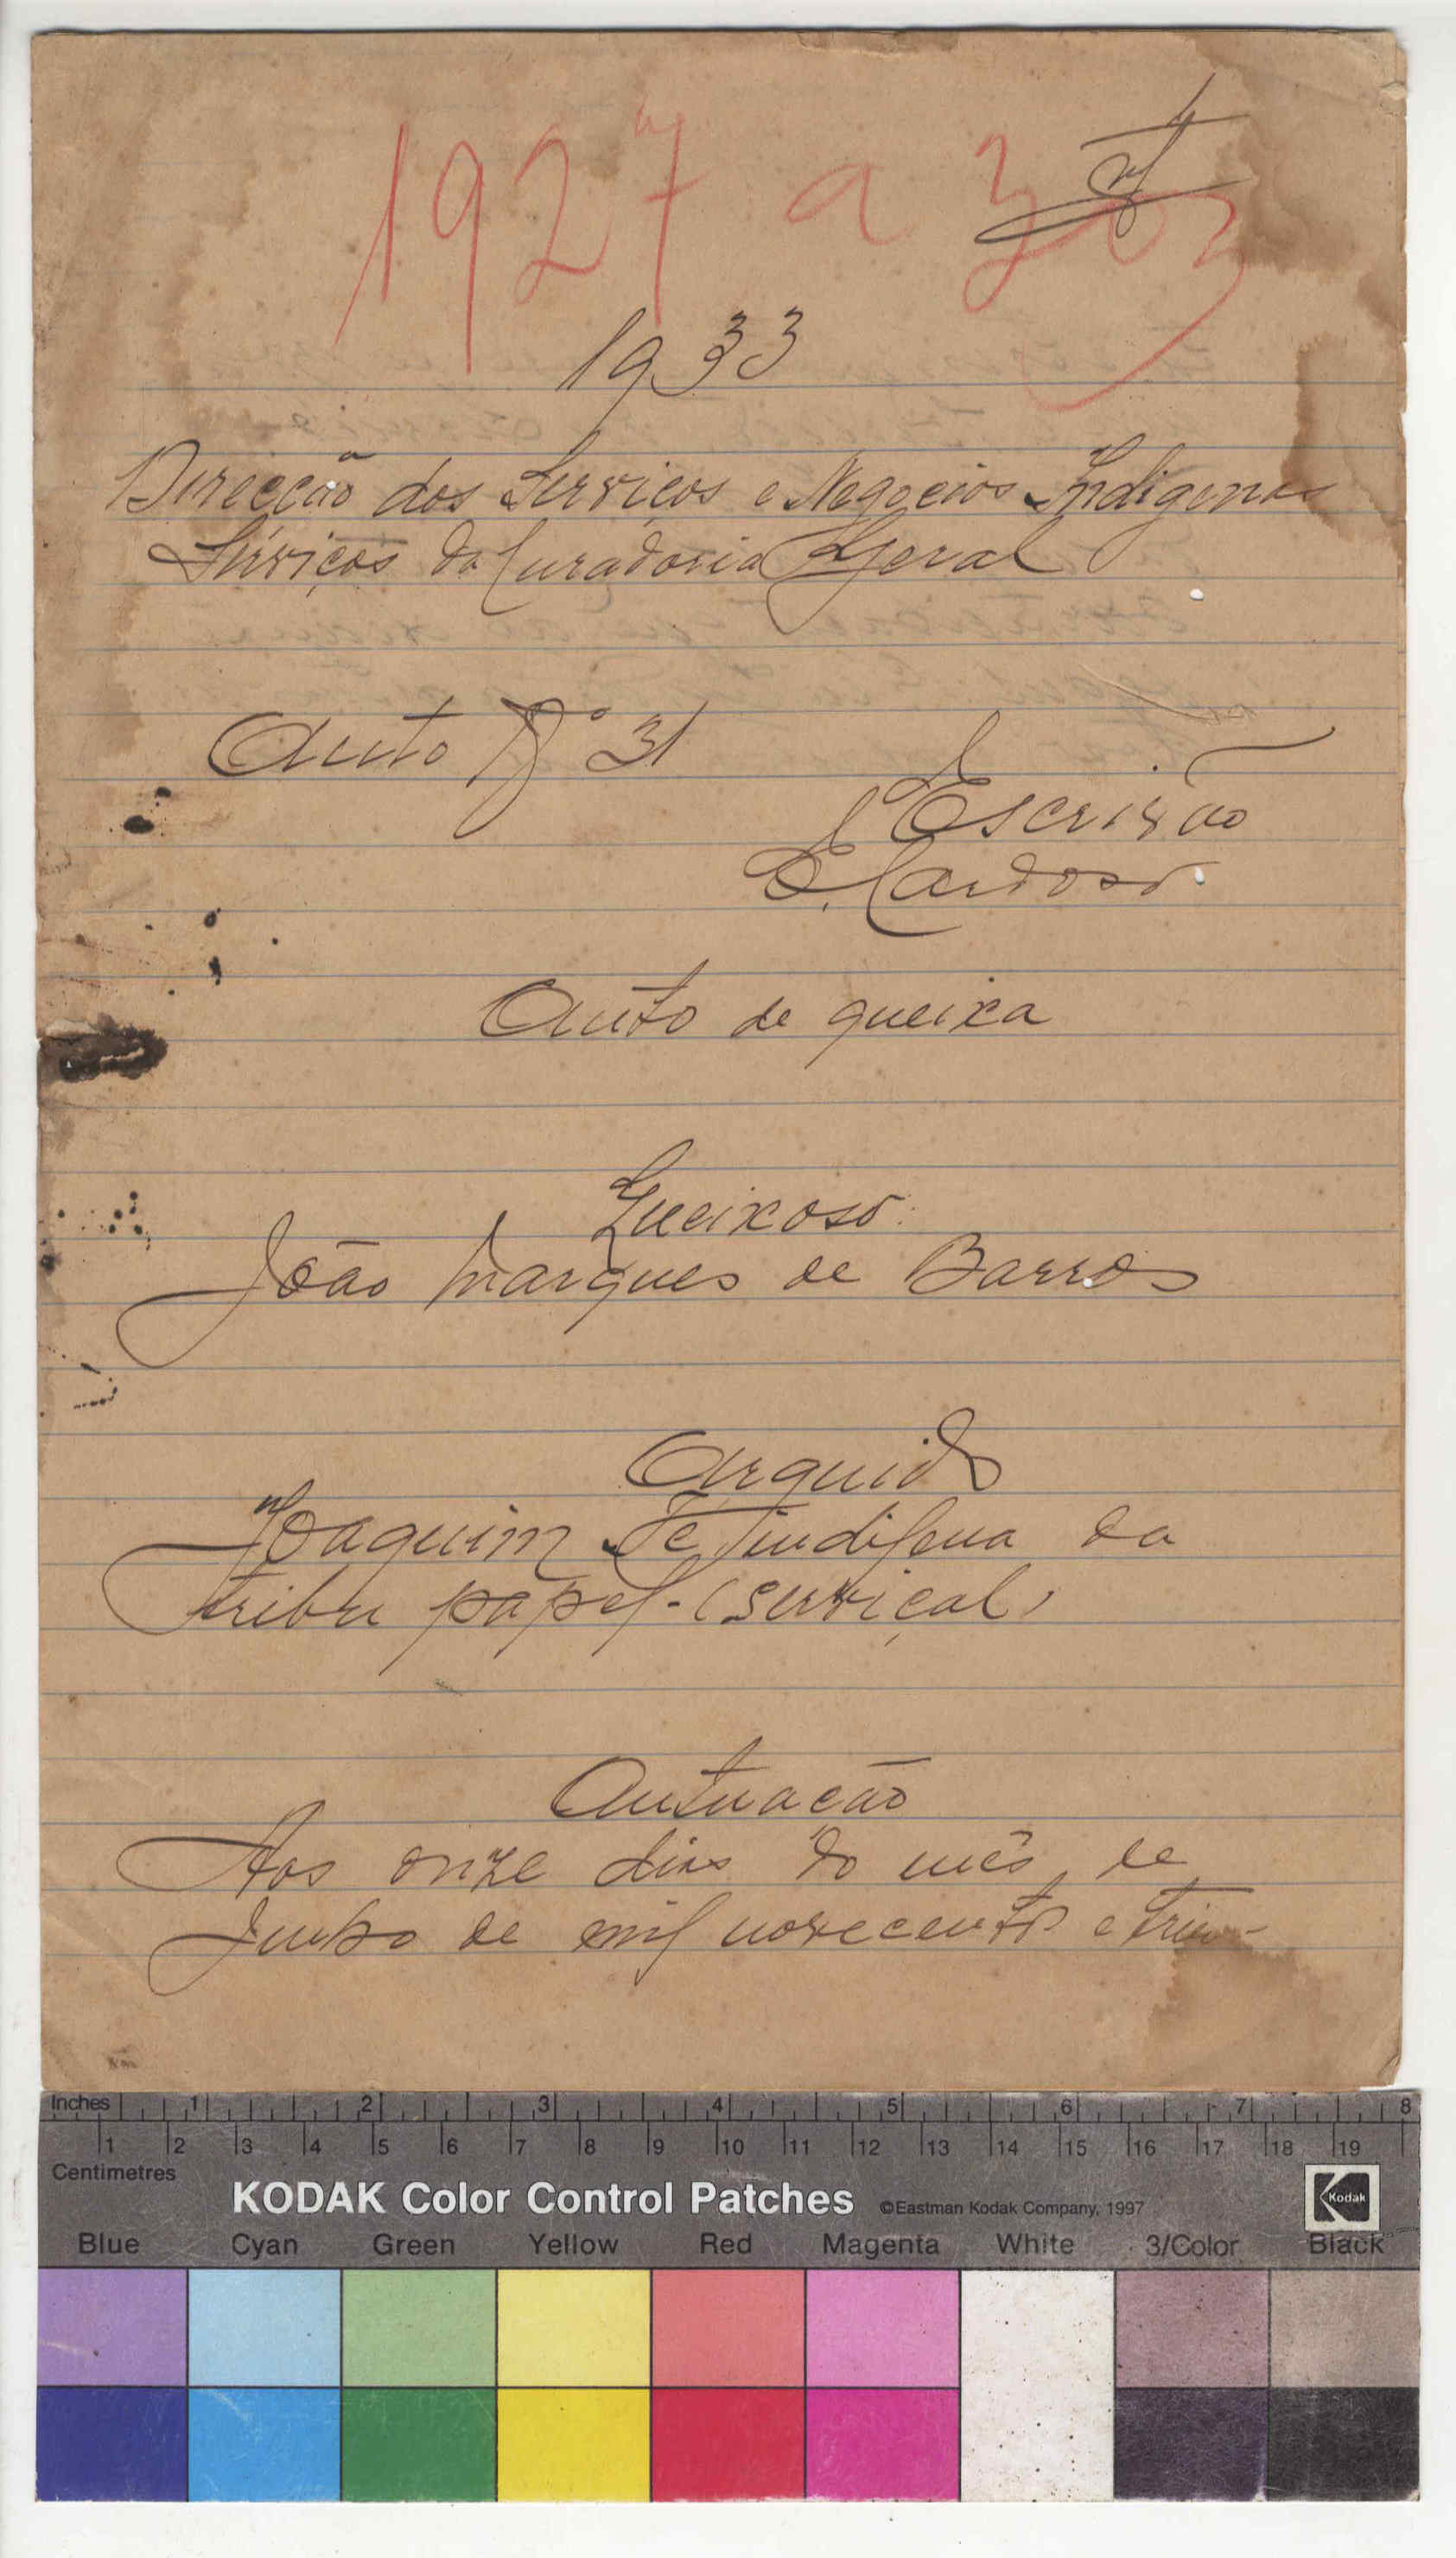 1927 a 303
1933
Direcção dos Serviços e Negocios Indigenas
Serviços da Curadoria Geral
Auto Nº 31
O Escrivão
E. Cardoso
Auto de queixa
Queixoso:
João Marques de Barros
Arguido
Joaquim Té, indigena da
tribu papel-(serviçal)
Autuação
Aos onze dias do mês de
Junho de mil novecentos e trin-
Inches 1 2 3 4 5 6 7 8
1 2 3 4 5 6 7 8 9 10 11 12 13 14 15 16 17 18 19
Centimetres
KODAK Color Control Patches ©Eastman Kodak Company, 1997 Kodak
Blue Cyan Green Yellow Red Magenta White 3/Color Black